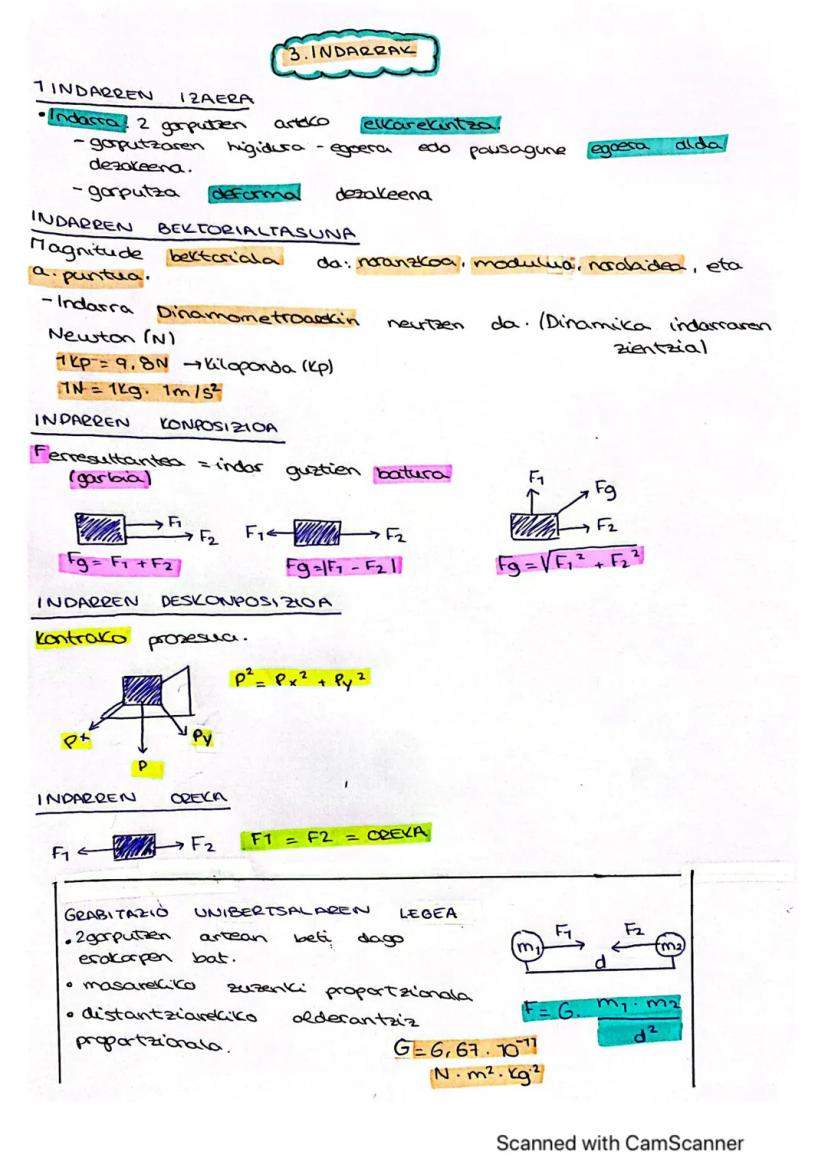 3. INDARRAK
1 INDARREN IZAERA
• Indarra: 2 gorputzen arteko elkarekintza.
- gorputzaren higidura - egoera edo pausagune egoera alda
dezakeena.
- gorputza deforma dezakeena
INDARREN BEKTORIALTASUNA
Magnitude bektoriala da: noranzkoa, modulua, norabidea, eta
a. puntua.
- Indarra Dinamometroarekin neurtzen da. (Dinamika indarraren
zientzia)
Newton (N)
1 Kp = 9,8N → Kiloponda (Kp)
1N = 1Kg . 1m/s²
INDARREN KONPOSIZIOA
Ferresultantea = indar guztien batura
(garbia)
F1
F2
Fg = F1 + F2
F1
F2
Fg = |F1 - F2|
F1
Fg
F2
Fg = √F1² + F2²
INDARREN DESKONPOSIZIOA
Kontrako prozesua.
P² = Px² + Py²
Px
Py
P
INDARREN OREKA
F1
F2
F1 = F2 = OREKA
GRABITAZIO UNIBERTSALAREN LEGEA
• 2 gorputzen artean beti dago
erakarpen bat.
• masarekiko zuzenki proportzionala
• distantziarekiko alderantziz
proportzionala.
m1 F1 F2 m2
d
F = G . m1 . m2 / d²
G = 6,67 . 10⁻¹¹
N . m² . Kg⁻²
Scanned with CamScanner